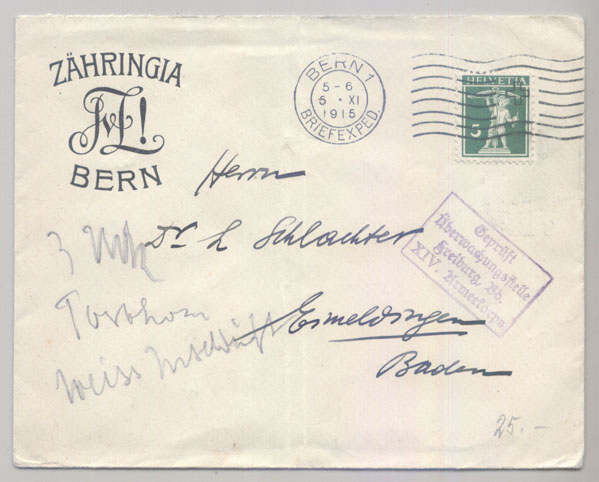 ZÄHRINGIA
BERN
BERN 1
5-6
5 · XI
1915
BRIEFEXPED.
HELVETIA
5
Herrn
Dr. L Schlachter
Eimeldingen
Baden
Geprüft
Überwachungsstelle
Freiburg, Bd.
XIV. Armeekorps
3
Weiss
25.-